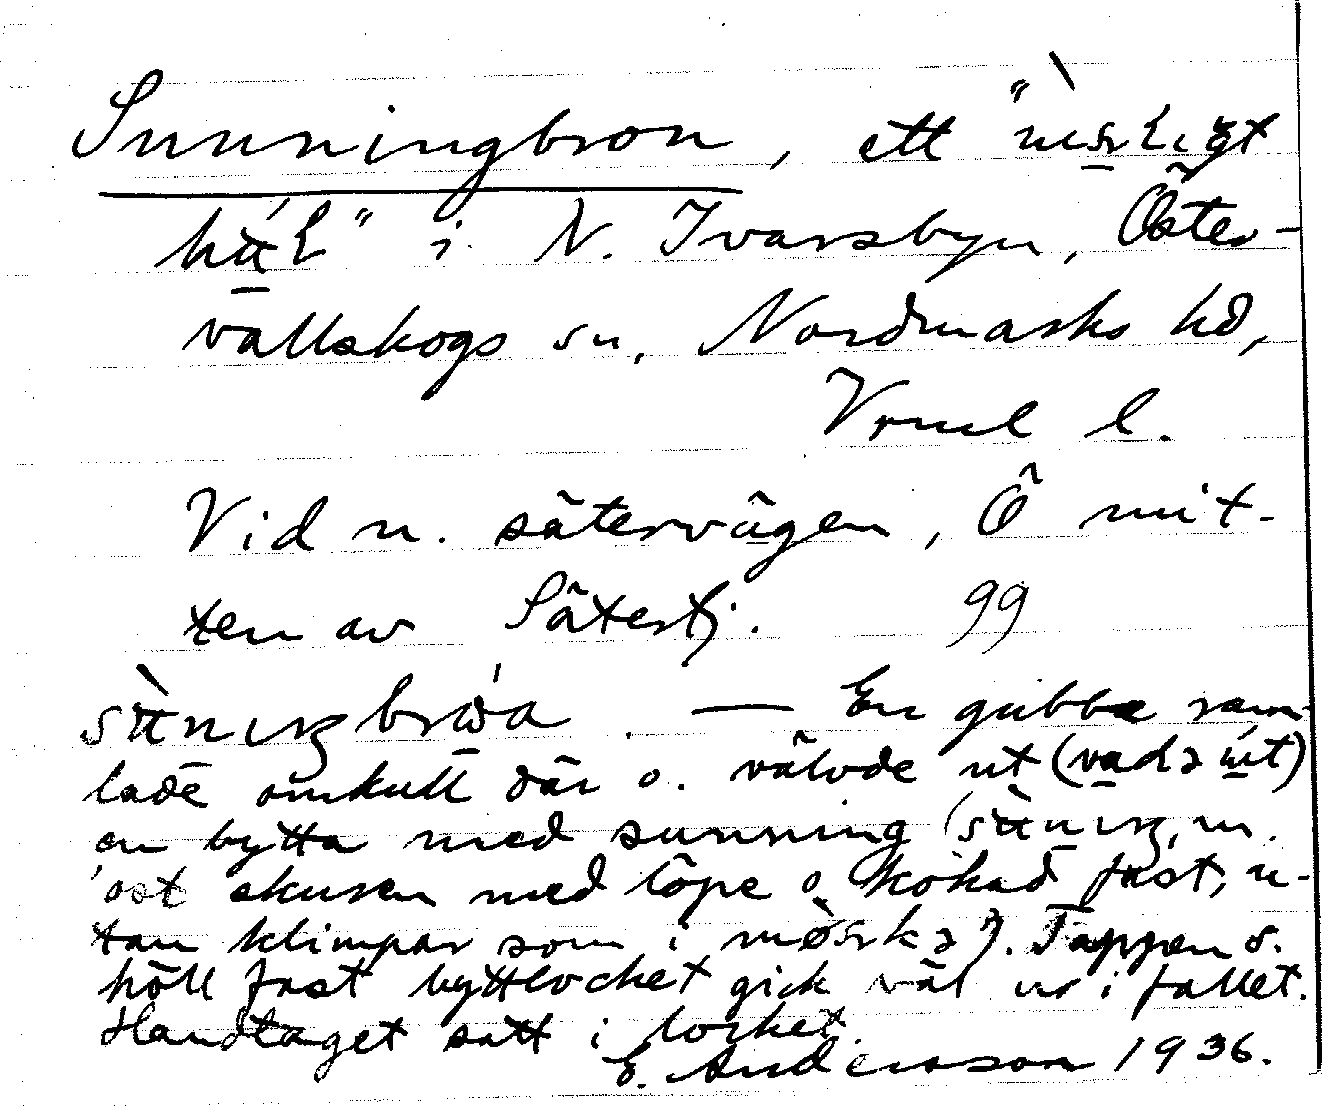 Sunningbron, ett "
häl" i N. Ivarsbyn, Öster-
vallskogs sn, Nordmarks hd,
Vrml l.
Vid n. sätervägen, Ö mit-
ten av Sätertj. 99
— En gubbe ram-
lade omkull där o. välvde ut
en bytta med sunning
ost skuren med löpe o. kokad fast, u-
tan klimpar som i Tappen s.
höll fast byttlocket gick väl ur i fallet.
Handtaget satt i locket.
E. Andersson 1936.